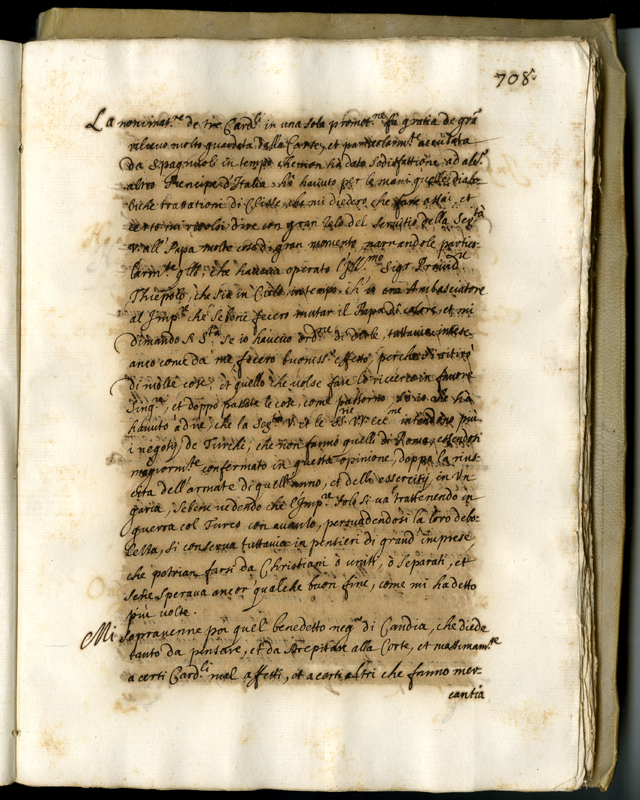 708.
La nominat.ne de tre Card.li in una sola promot.ne fu gratia de grã
rilievo molto guardata dalla Corte, et particolarm.te
da Spagnuoli in tempo che non hà dato sodisfattione ad alc.o
altro Prencipe d'Italia, hò havuto per le mani quelle
che mi diedero che fare assai, et
dire con gran zelo del servitio della Ser.tà
V. all Papa molte cose di gran momento narrandole partico-
larm.te q.llo, che haveva operato l'Ill.mo Sig.r
Thiepolo, che sia in Cielo, in tempo, ch'ei era Ambasciatore
al Imp.re che sebene fecero mutar il Papa di colore, et mi
dimandò S. S.tà se io havevo ord.ne di dirle, tuttavia
anco come da me fecero buoniss.o effetto, perche si ritirò
di molte cose, et quello che volse fare lo ricercò in favore
et doppò passate le cose, come
havuto à dire, che la Ser.tà V. et le SS.rie VV. Ecc.me intendano più
i negotij de Turchi, che non fanno quelli di Roma, essendosi
magiorm.te confermato in questa opinione, doppò la rius-
cita dell'armate di quell'anno, et delli esserciti in Un
garia, sebene vedendo che l'Imp.re solo si va trattenendo in
guerra col Turco con avanto, persuadendosi la loro debo-
lezza, si conserva tuttavia in pensieri di grand'imprese,
che potrian farsi da Christiani ò uniti, ò separati, et
sene sperava ancor qualche buon fine, come mi hà detto
più volte.
Mi sopravenne poi quel benedetto neg.o di Candia, che diede
tanto da pensare, et da strepitar alla Corte, et massimam.te
a certi Card.li mal affetti, et a certi altri che fanno mer-
cantia